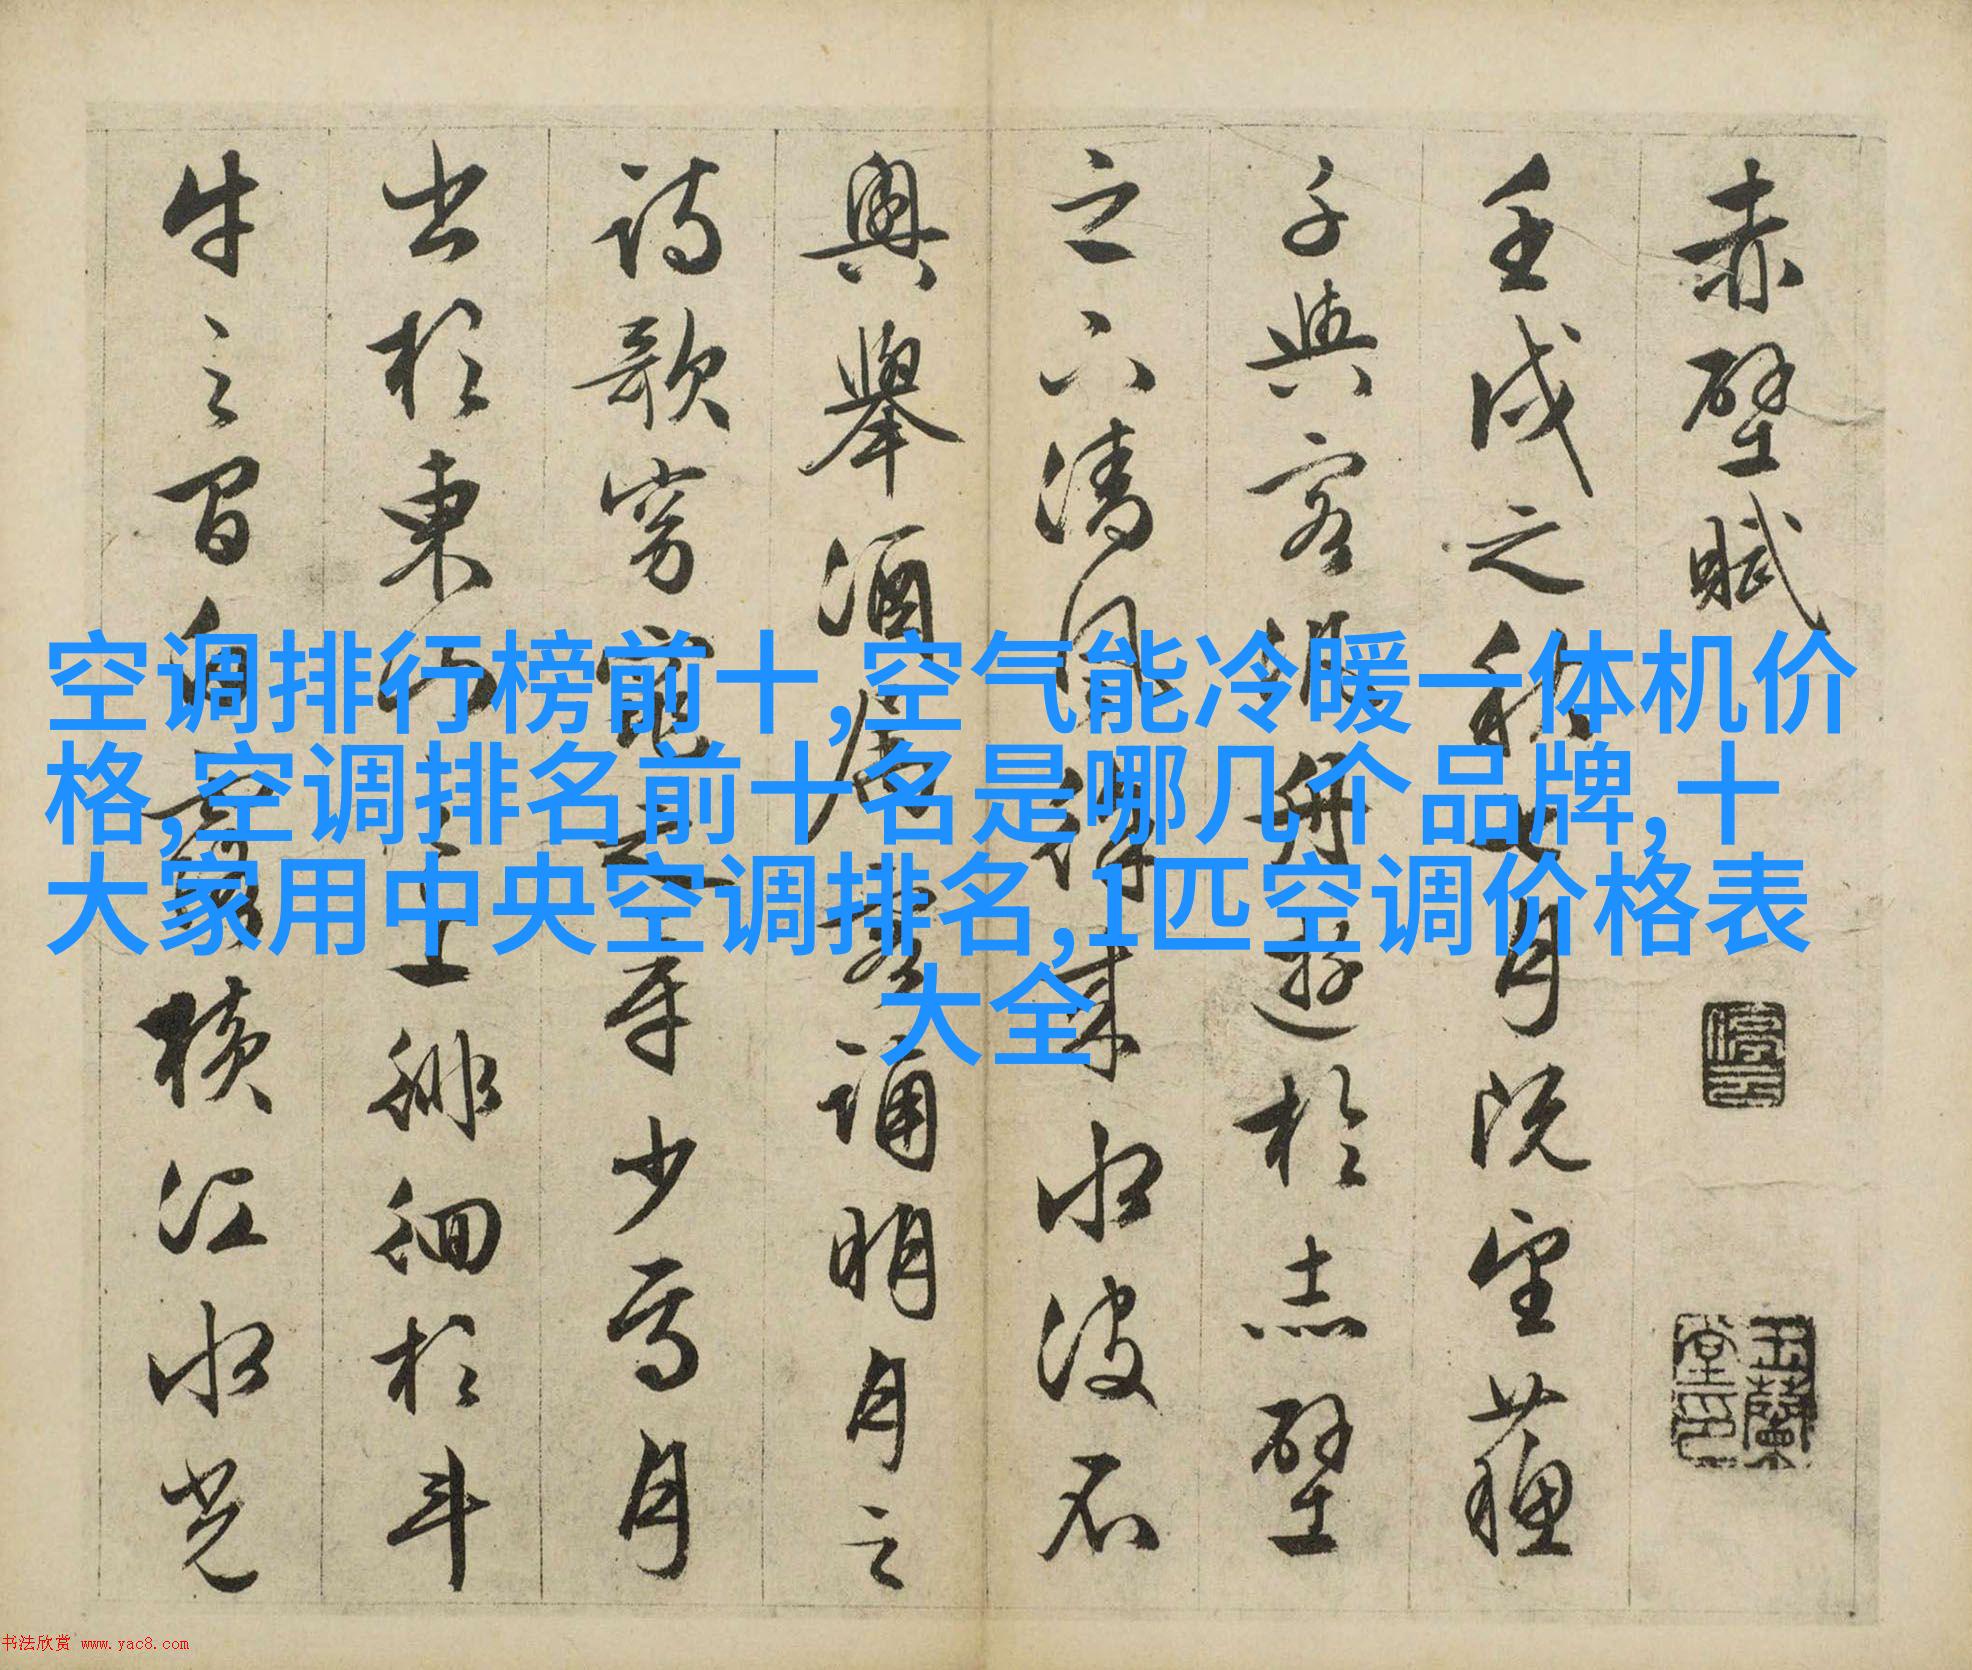 赤壁賦
停雲
玉蘭堂印
壬戌之秋七月既望蘓
子與客泛舟遊於赤壁
之下清風徐來水波不
興舉酒屬客誦明月之
詩歌窈窕之章少焉月
出於東山之上徘徊於斗
牛之間白露橫江水光
空调排行榜前十,空气能冷暖一体机价
格,空调排名前十名是哪几个品牌,十
大家用中央空调排名,1匹空调价格表
大全
书法欣赏 www.yac8.com